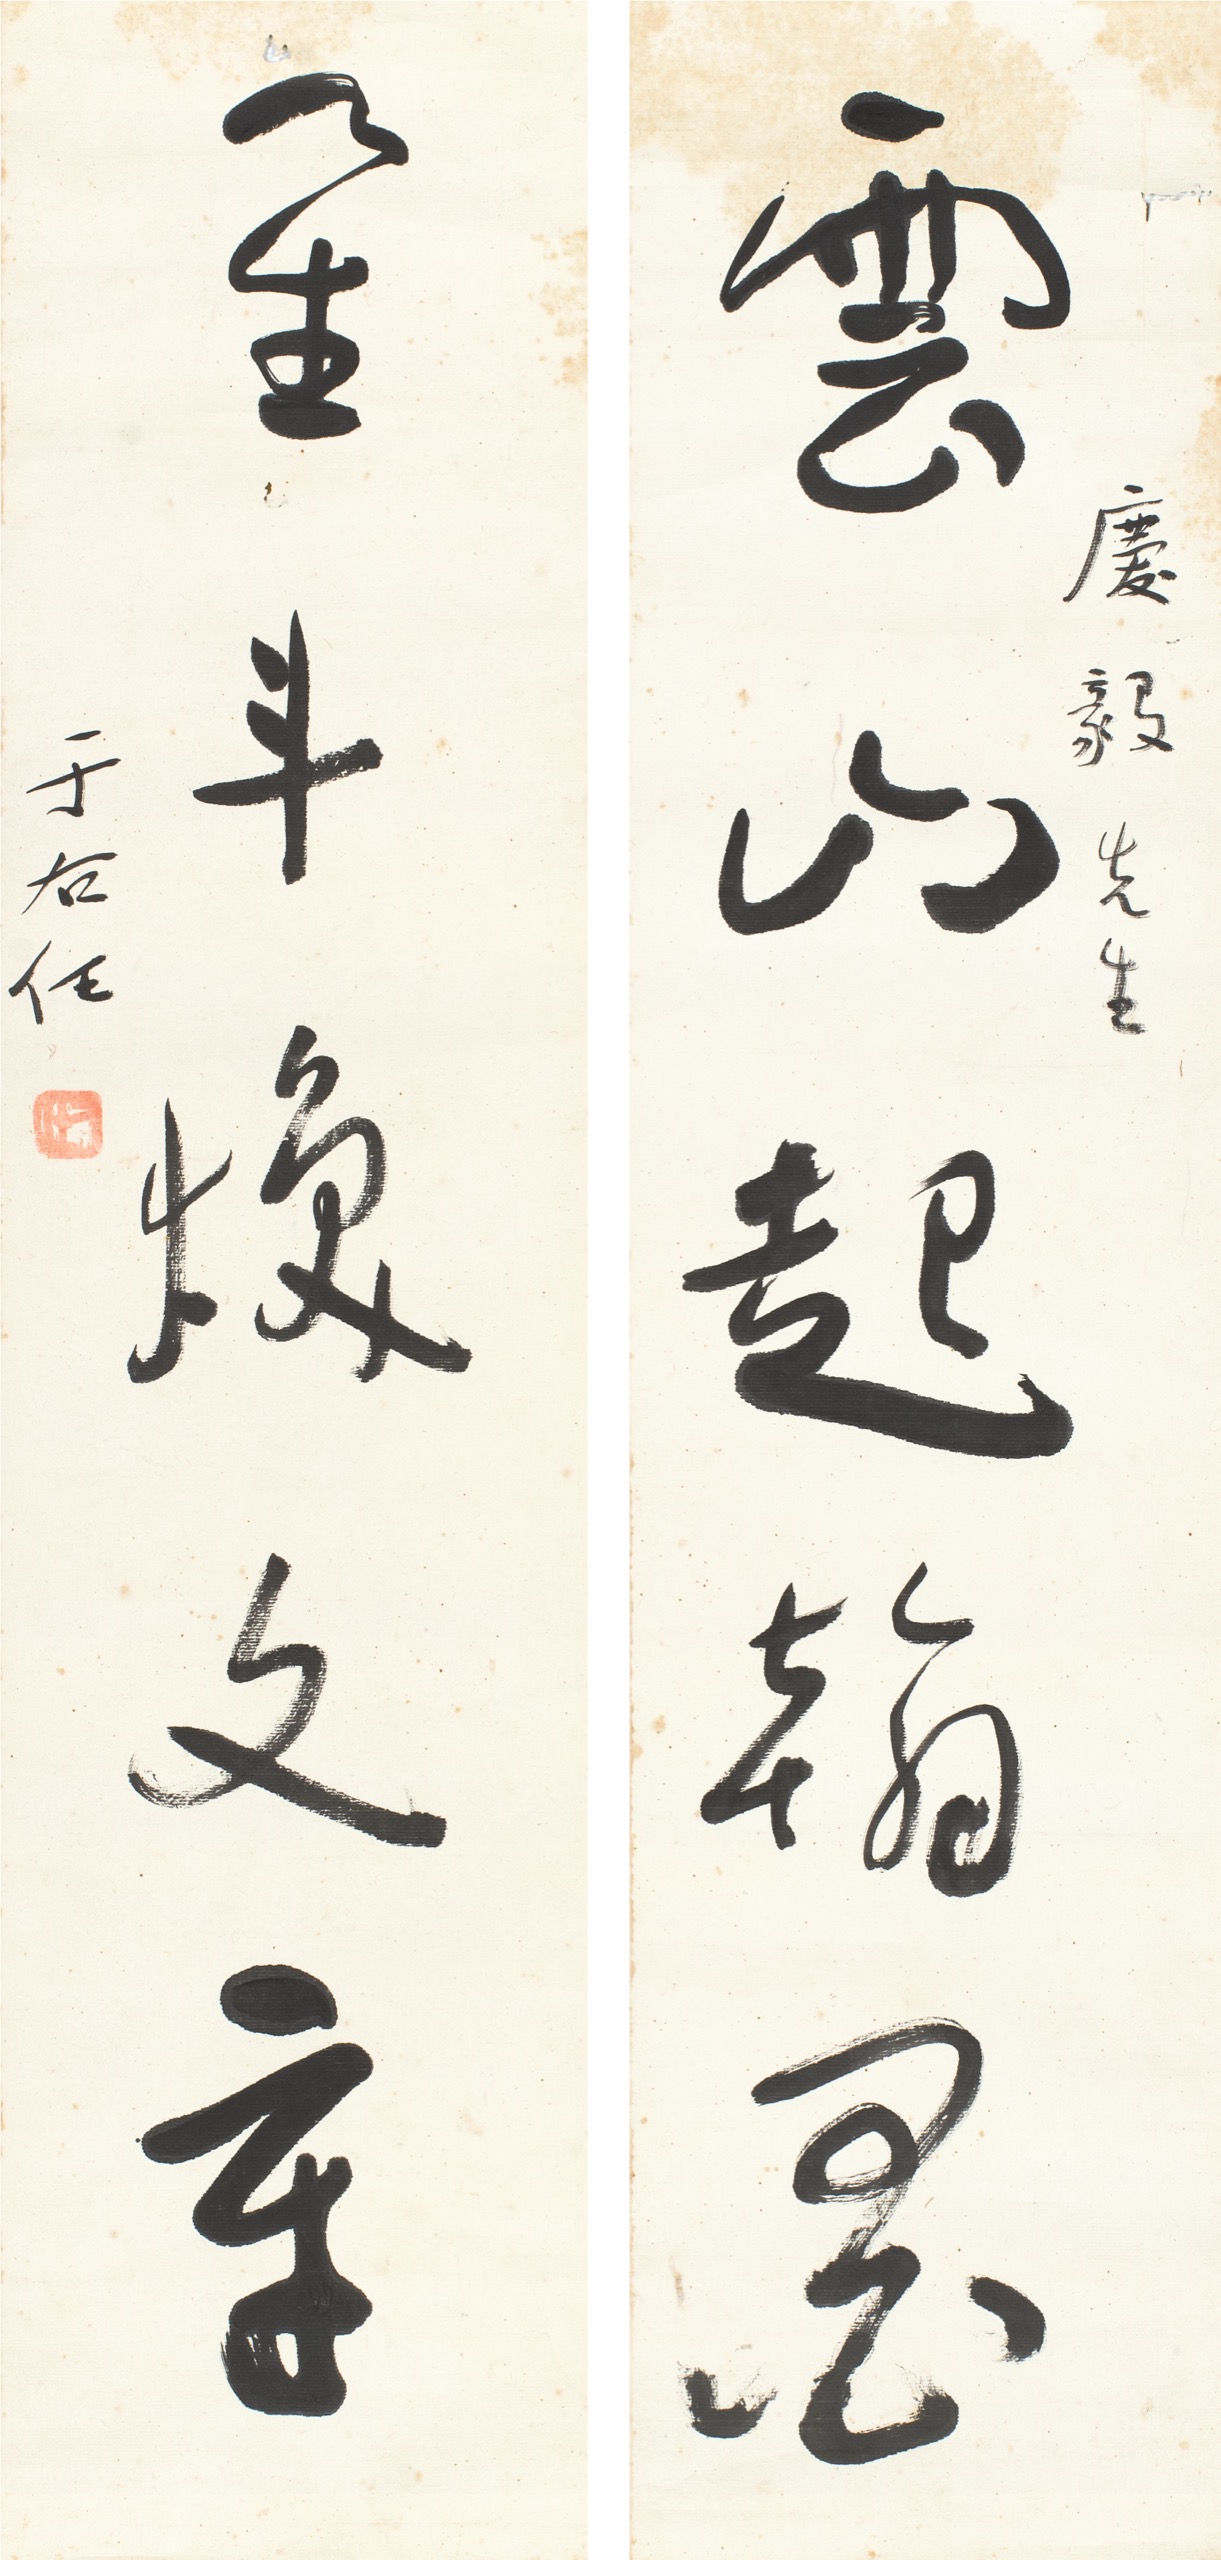 慶毅先生
雲山起翰墨
星斗煥文章
于右任